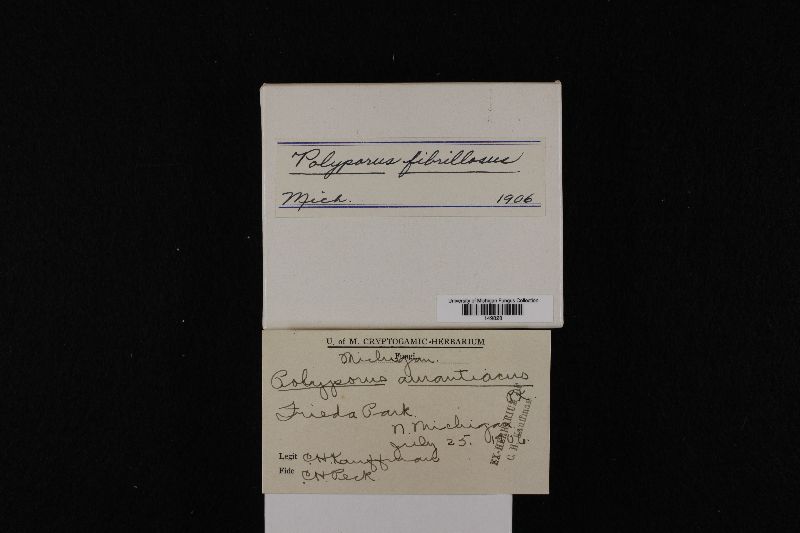 Polyporus fibrillosus
Mich. 1906
University of Michigan Fungus Collection
U. of M. CRYPTOGAMIC HERBARIUM
Fungi
Michigan.
Polyporus aurantiacus
Pk
Frieda Park.
N. Michigan
July 25. 1906.
Legit C.H. Kauffman
Fide C.H. Peck
EX-HERBARIUM OF
C. H. Kauffman